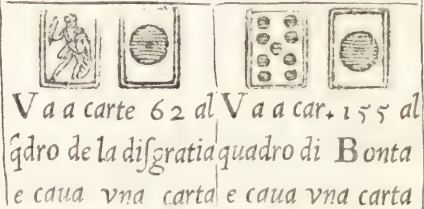 Va a carte 62 al
q̃dro de la diſgratia
e caua vna carta
Va a car. 155 al
quadro di Bonta
e caua vna carta